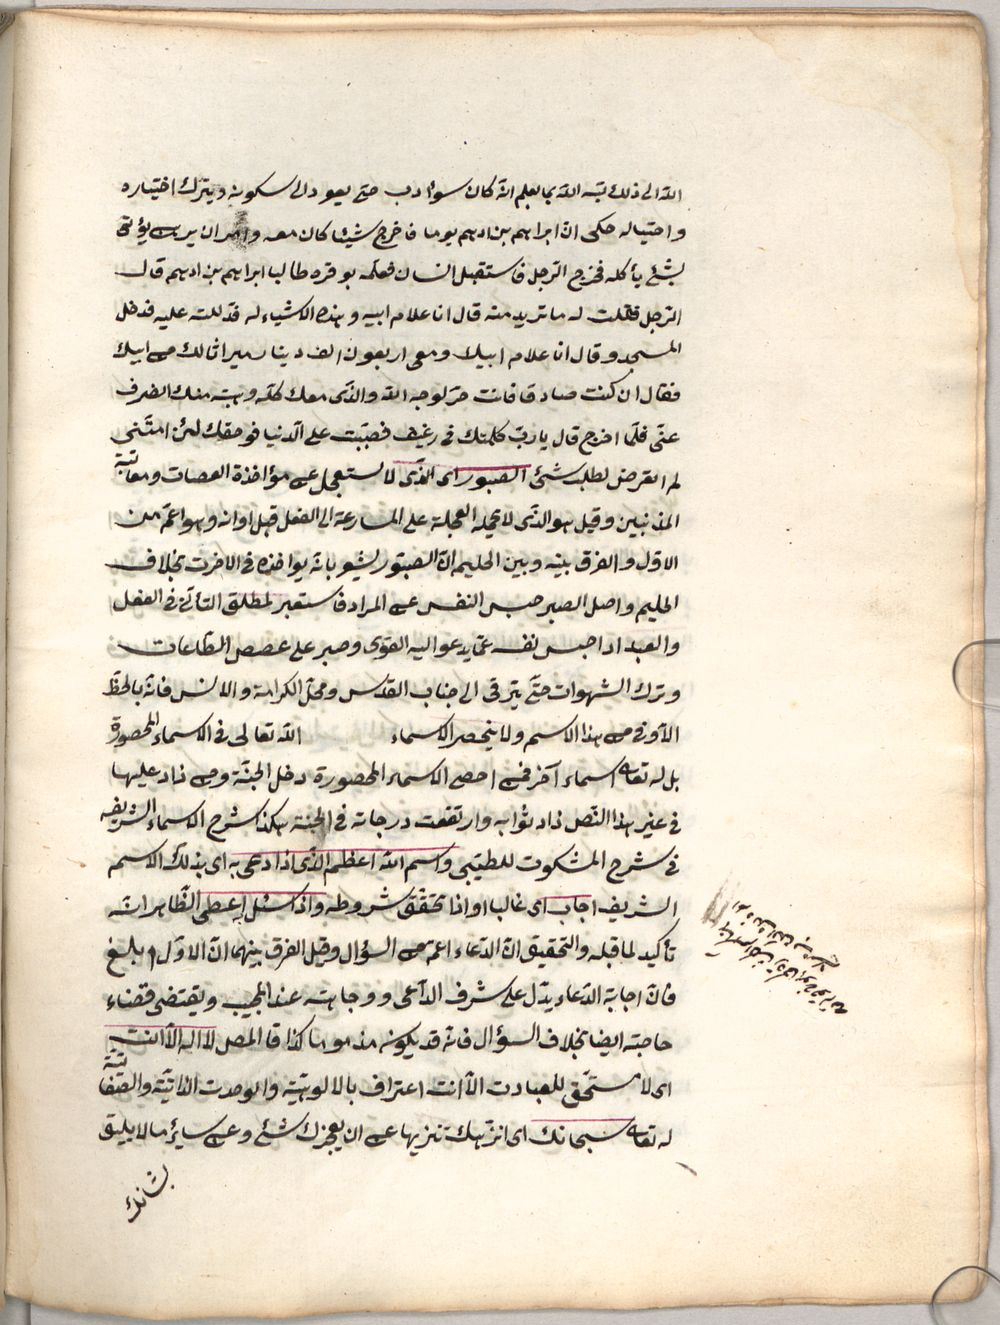 الله الى ذلك نبّه الله بما يعلم انّه كان سوٴ ادب حتّى يعود الى سكونه ويترك اختياره
واحتياله حكى انّ ابراهيم بن ادهم يوما فاخرج شيئا كان معه وامر ان يرهن يؤتى
بشئ يأكله فخرج الرجل فاستقبل انسان فعلمه بوقره طالبا ابراهيم بن ادهم قال
الرجل فقلت له ما تريد منه قال انا غلام ابيه وهذه الاشياء له فدللته عليه فدخل
المسجد وقال انا غلام ابيك ومعى اربعون الف دينار ميراثا لك من ابيك
فقال ان كنت صادقا فانت حرّ لوجه الله والذّى معك كلّه وهبته منك انصرف
عنّى فلمّا اخرج قال يا ربّ كلمتك فى رغيف فصببت على الدنيا فوحقك لئن امتّنى
لم اتعرض لطلب شئ الصبور اى الذّى لا يستعجل عن مؤاخذة العصات ومعاتبة
المذنبين وقيل هو الذّى لا يحمله العجلة على المسارعة الى الفعل قبل اوانه وهو اعمّ من
الاول والفرق بينه وبين الحليم انّ الصبور يشعر بانه يواخذه فى الاخرت بخلاف
الحليم واصل الصبر حبس النفس عن المراد فاستعير لمطلق التأنّى فى الفعل
والعبد اذا حبس نفسه عمّا يدعوا اليه القوى وصبر على غصص الطّاعات
وترك الشهوات حتّى يترقى الى جناب القدس ومحلّ الكرامة والانس فانه بالحظّ
الاوفى من هذا الاسم ولا ينحصر الاسماء الله تعالى فى الاسماء المحصورة
بل له تعا اسماء آخر فمن احصى الاسماء المحصورة دخل الجنّة ومن زاد عليها
فى غير هذا النّص زاد ثوابه وارتفعت درجاته فى الجنة هكذا شرح الاسماء الشريفه
فى شرح المشكوت للطيّبى واسم الله اعظم الذّى اذا دعى به اى بذلك الاسم
الشريف اجاب اى غالبا او اذا تحقق شروطه واذ سئل اعطى الظّاهر انّه
تأكيد لما قبله والتحقيق انّ الدّعاء اعم من السؤال وقيل الفرق بينهما انّ الاوّل ابلغ
فانّ اجابة الدّعاء يدّل على شرف الدّاعى ووجاهته عند المجيب ويقتضى قضاء
حاجته ايضا بخلاف السؤال فانّه قد يكونه مذموما كذا قا المص لا اله الّا انت
اى لا مستحّق للعبادت الّا انت اعتراف بالالوهيّة والوحدت الذاتيّة والصّفاتيّة
له تعا سبحانك اى انزّهك تنزيها عن ان يعجزك شئ وعن سائر ما لا يليق
بشانك